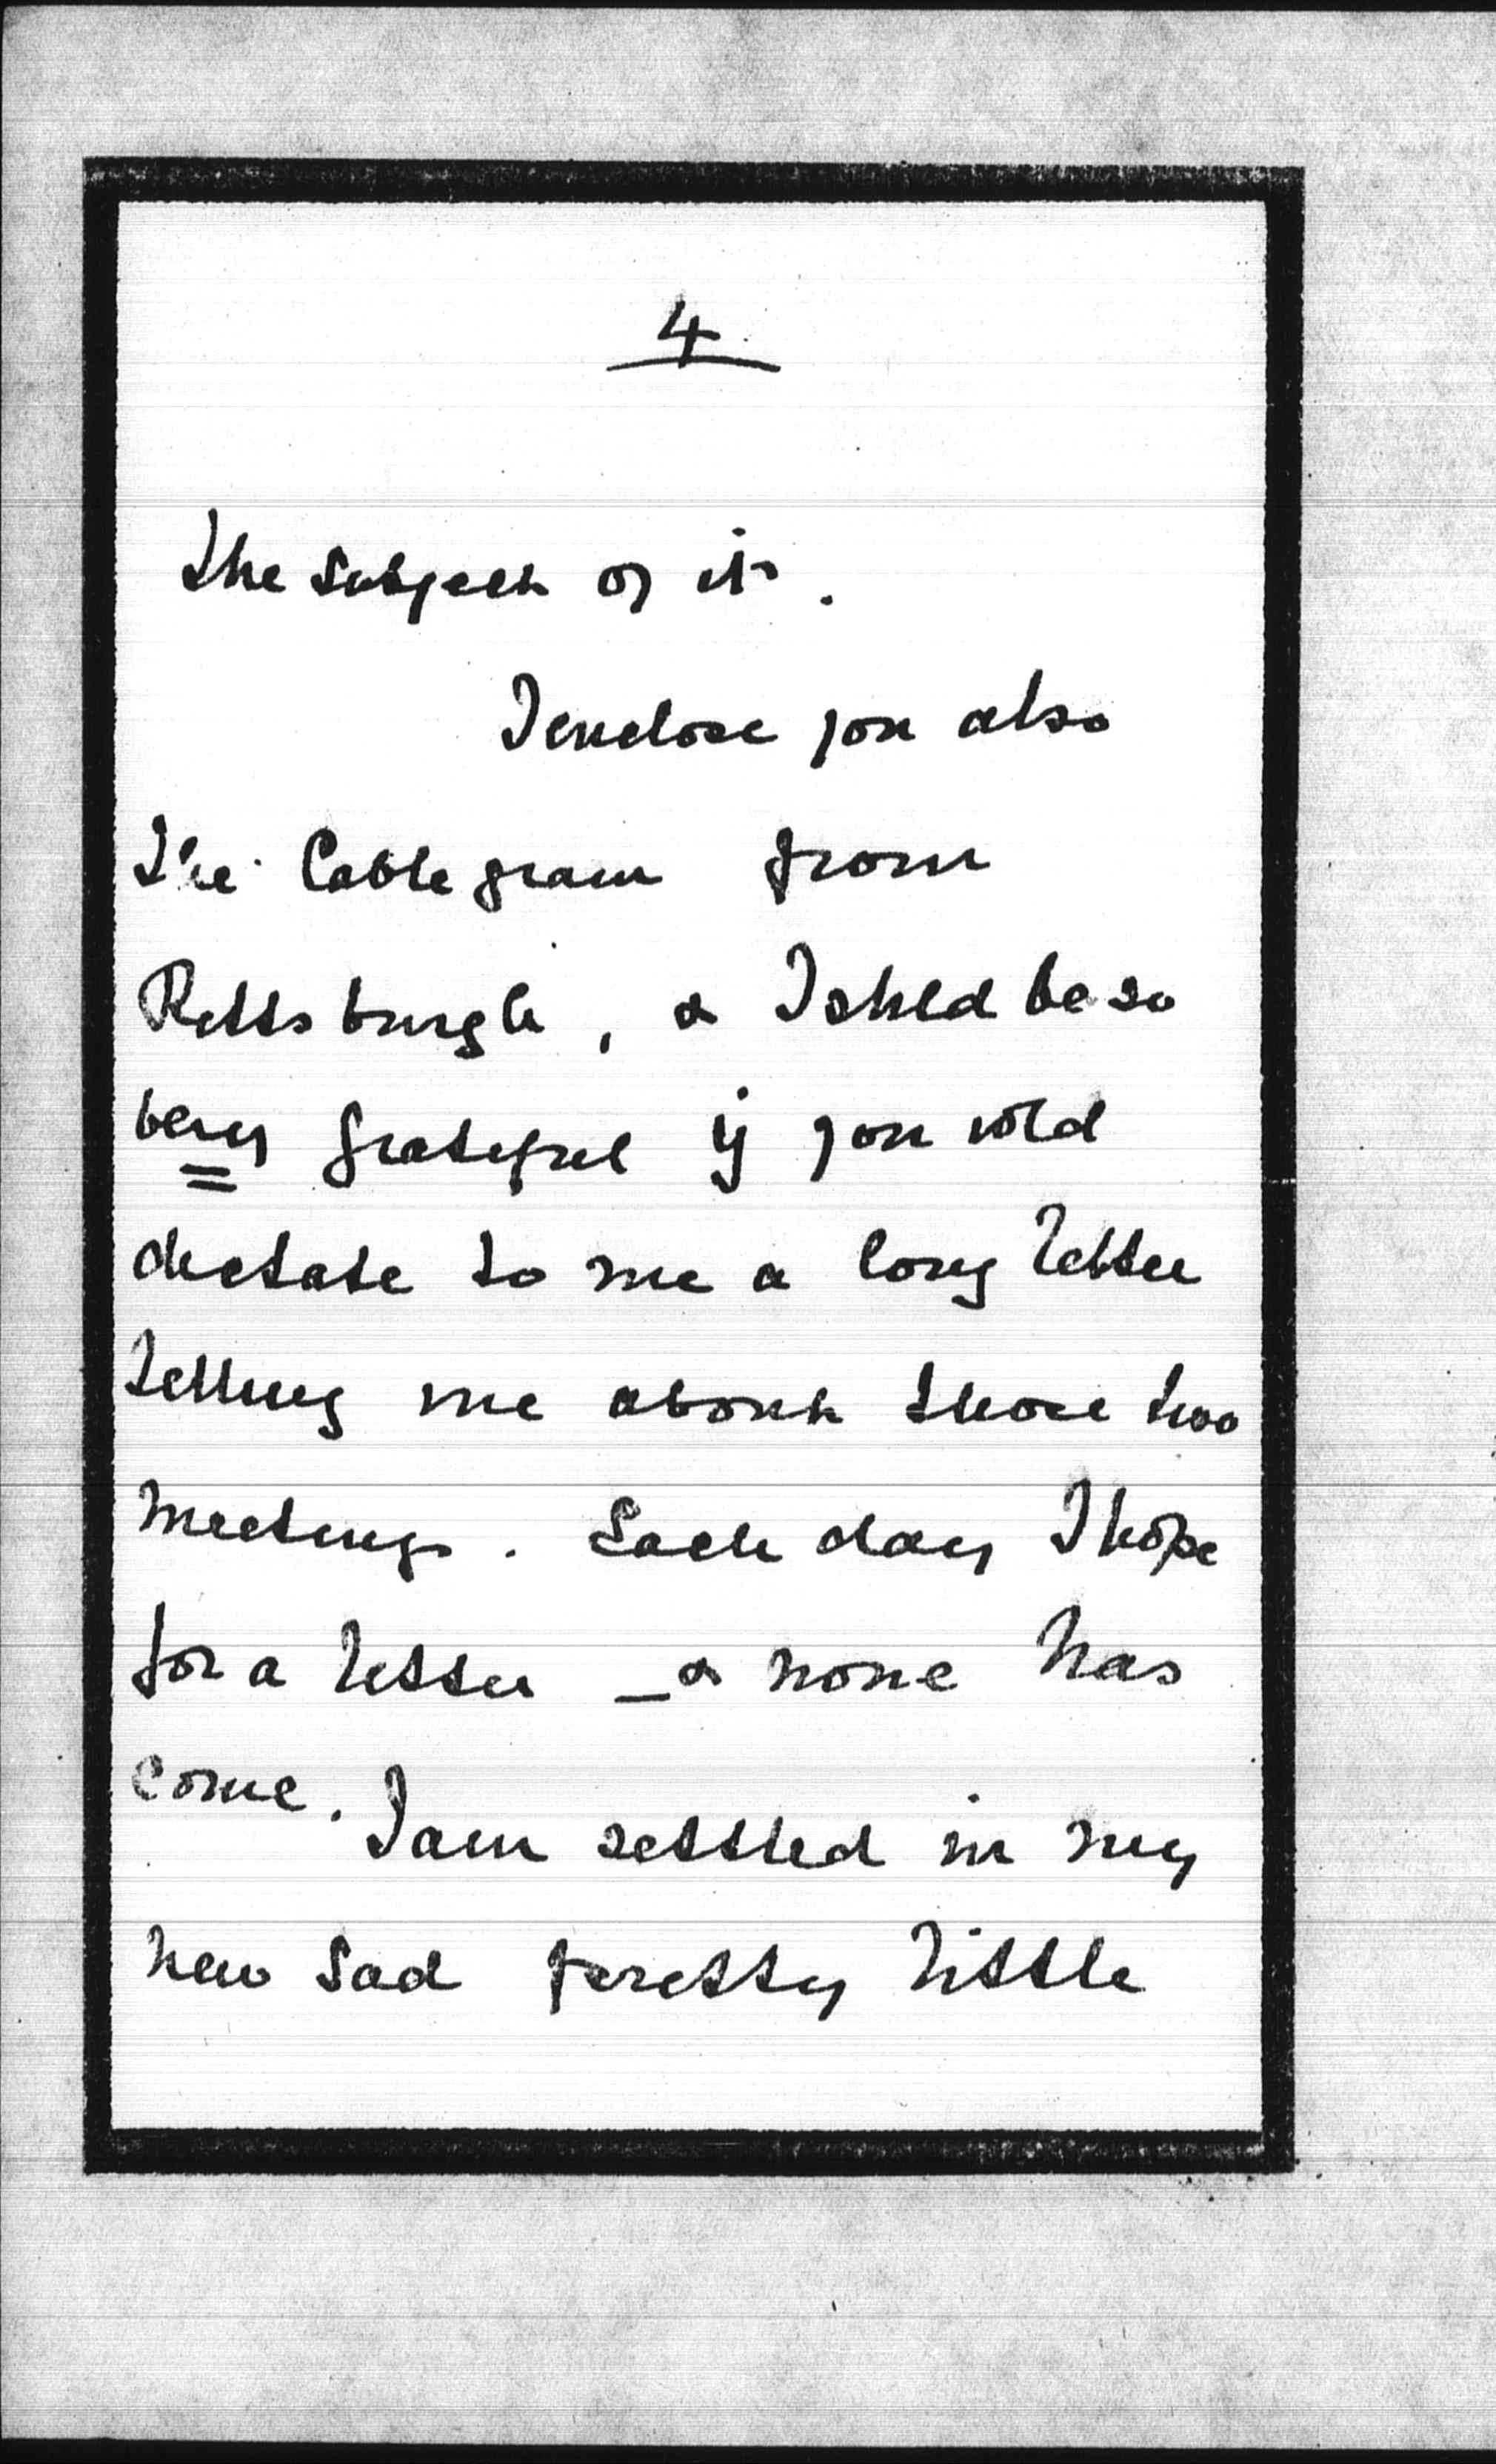 4
the subject of it.
I enclose you also
the Cablegram from
Pittsburgh, & I shld be so
very grateful if you wld
dictate to me a long letter
telling me about those two
meetings. Each day I hope
for a letter – & none has
come. I am settled in my
new sad pretty little